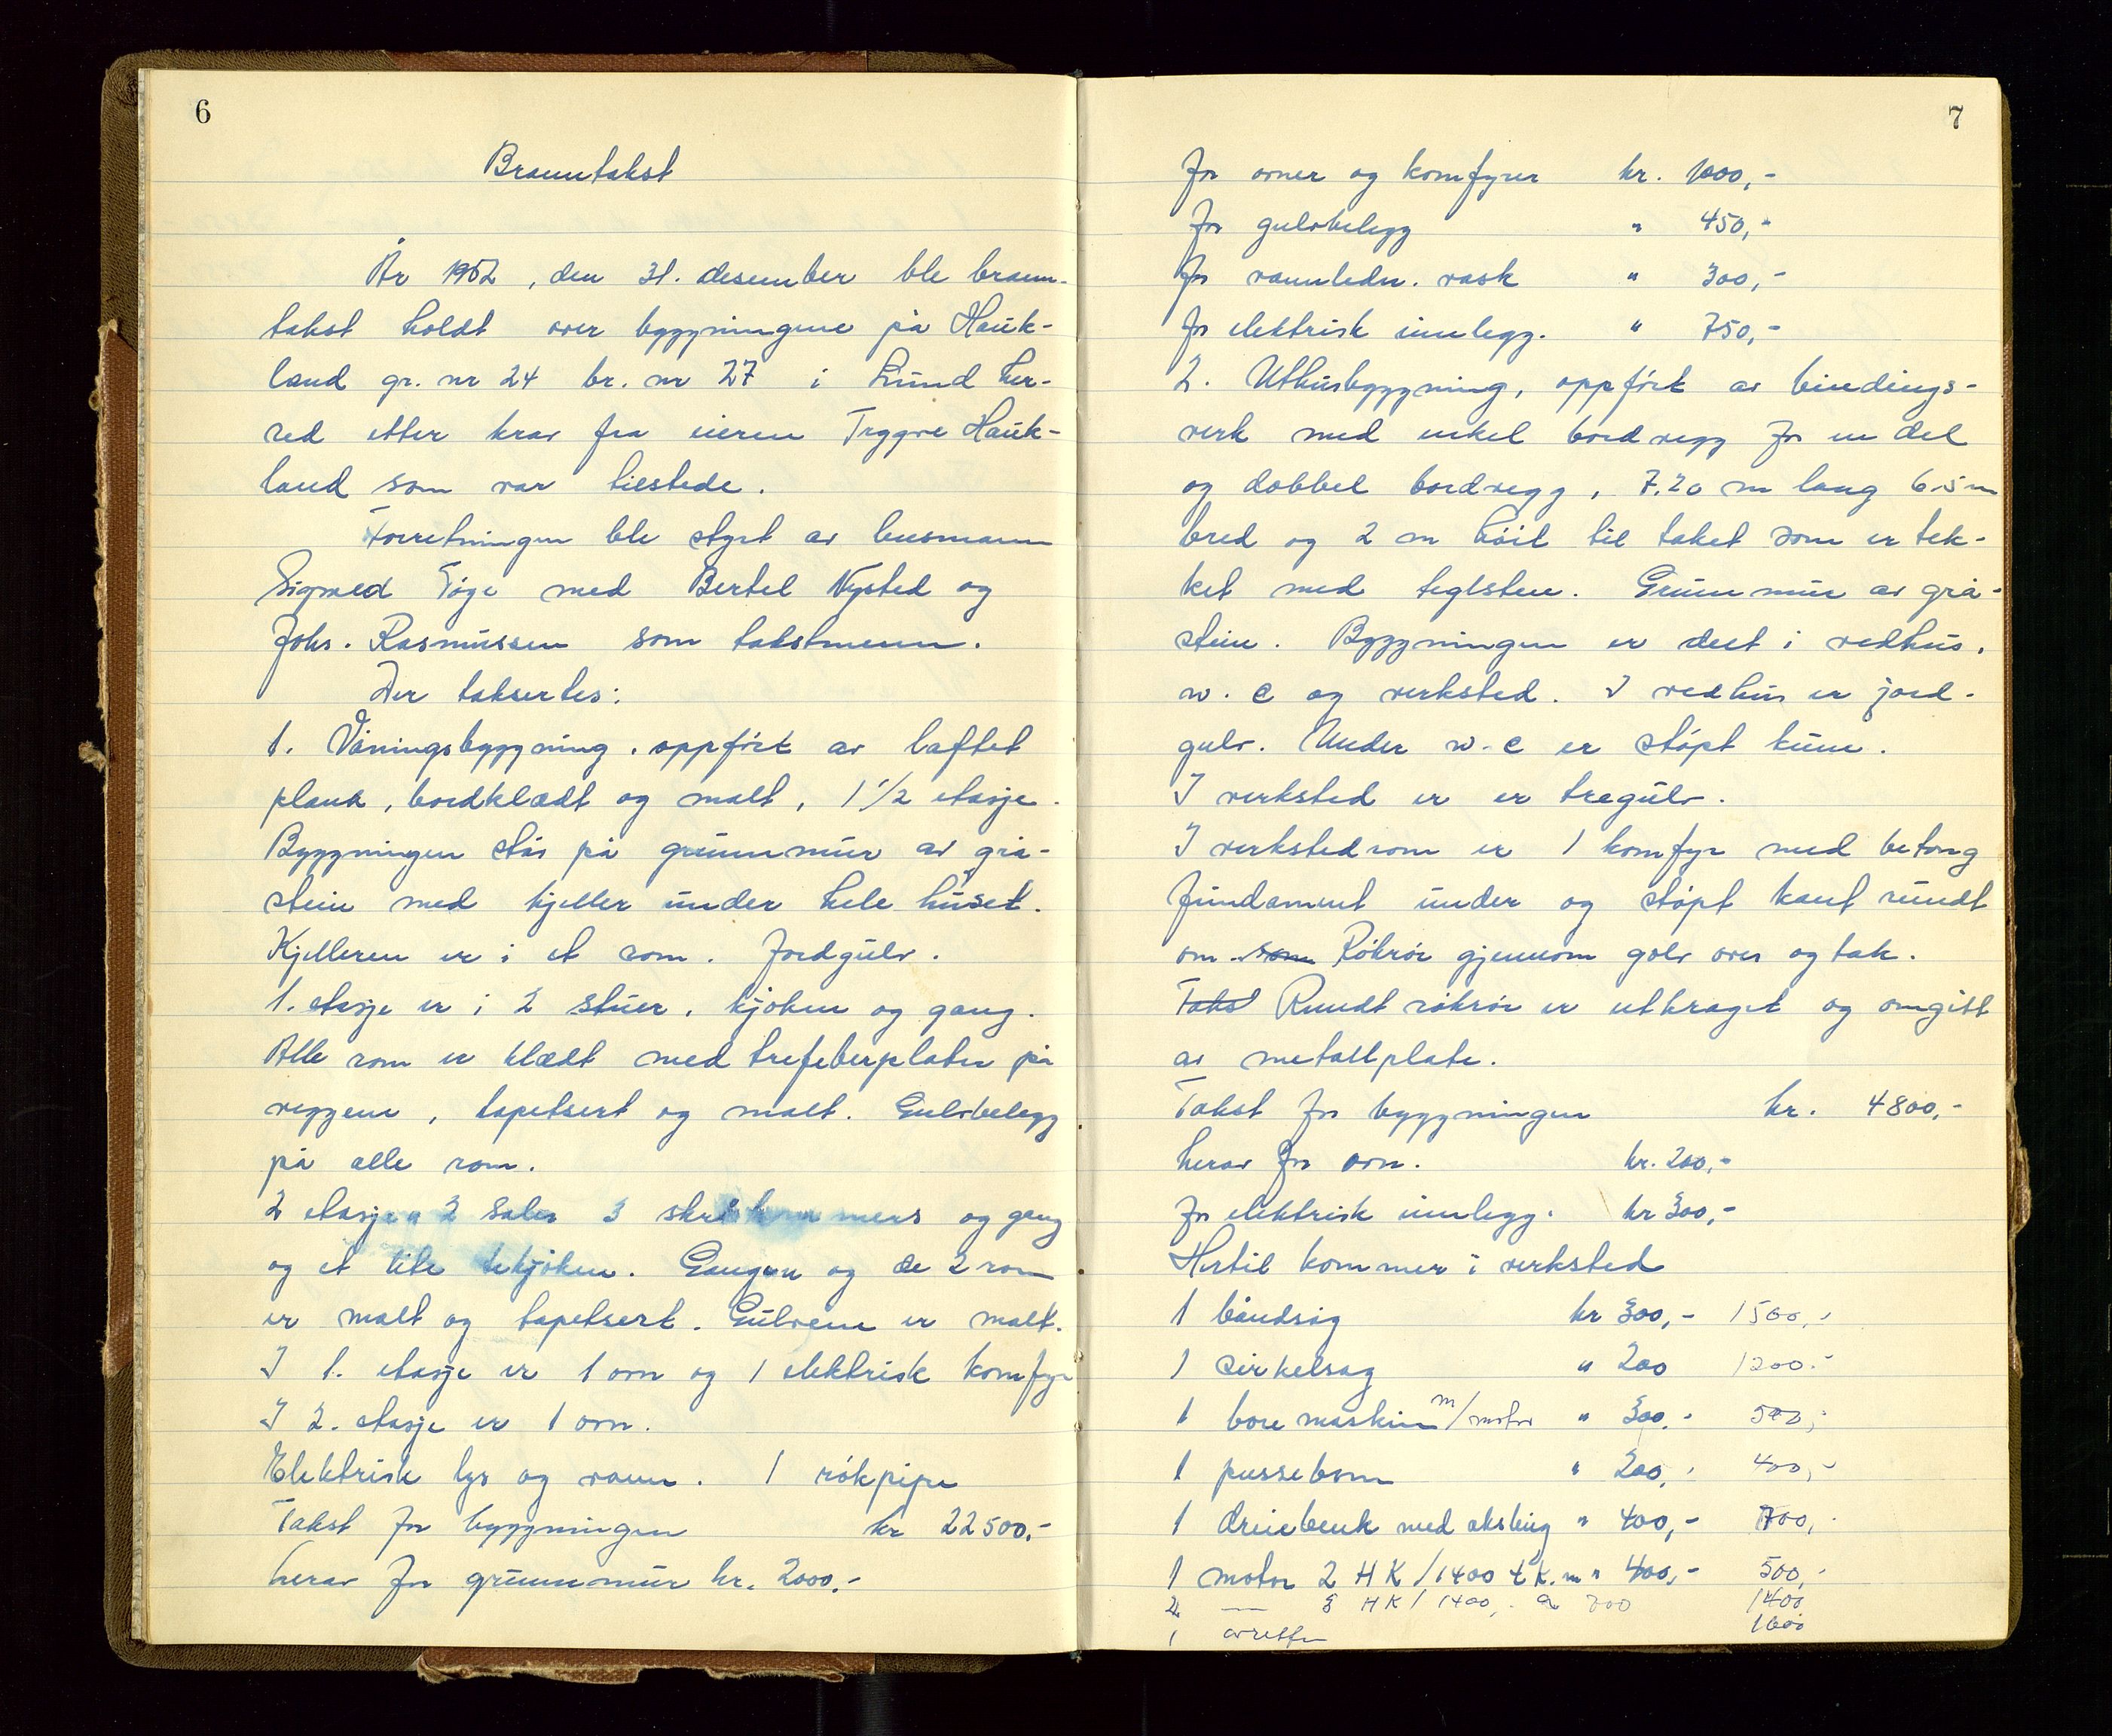 6
Branntakst
År 1952, den 31. desember ble brann-
takst holdt over bygningene på Hauk-
land gr. nr 24 br. nr 27 i Lund her-
red etter krav fra eieren Trygve Hauk-
land som var tilstede.
Forretningen ble styrt av lensmann
Sigmed Tøge med Bertel Nysted og
Johs. Rasmussen som takstmenn.
Der taksertes:
1. Våningsbyggning, oppført av laftet
plank, bordklædt og malt, 1 1/2 etasje.
Byggningen står på grunnmur av grå-
stein med kjeller under hele huset.
Kjelleren er i et rom. Jordgulv.
1. etasje er i 2 stuer, kjøken og gang.
Alle rom er klædt med trefiberplater på
veggene, tapetsert og malt. Gulvbelegg
på alle rom.
2 etasje 2 saler 3 og gang
og et lite tekjøken. Gangen og de 2 rom
er malt og tapetsert. Gulvene er malt.
I 1. etasje er 1 ovn og 1 elektrisk komfyr
I 2. etasje er 1 ovn.
Elektrisk lys og vann. 1 rökpipe
Takst for byggningen kr 22500,-
herav for grunnmur kr. 2000,-
7
for ovner og komfyrer kr. 1000,-
for gulvbelegg " 450,-
for vannledn. vask " 300,-
for elektrisk innlegg. " 750,-
2. Uthusbyggning, oppført av bindings-
verk med enkel bordvegg for en del
og dobbel bordvegg, 7.20 m lang 6.5 m
bred og 2 m höit til taket som er tek-
ket med teglsten. Grunnmur av grå-
stein. Byggningen er delt i vedhus,
w. c og verksted. I vedhus er jord-
gulv. Under w. c er støpt kum.
I verksted er er tregulv.
I verkstedrom er 1 komfyr med betong
fundament under og støpt kant rundt
om. som Rökrör gjennom golv over og tak.
Takst Rundt rökrör er utkraget og omgitt
av metallplate.
Takst for byggningen kr. 4800,-
herav for ovn. kr. 200,-
for elektrisk innlegg. kr 300,-
Hertil kommer i verksted
1 båndsag kr 300,- 1500,-
1 sirkelsag " 200 1200.-
1 bore maskin m/motor " 300.- 500,-
1 pussebom " 200,- 400,-
1 dreiebenk med aksling " 400,- 700,-
1 motor 2 HK/1400 t " 400,- 500,-
2 — HK/1400, a 700 1400
1 avretter 1600